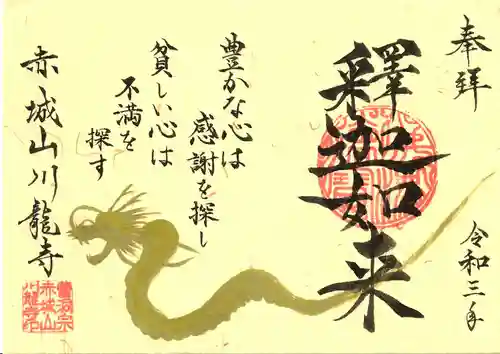 奉拝
釋迦如来
令和三年
豊かな心は
感謝を探し
貧しい心は
不満を
探す
赤城山川龍寺
曹洞宗
赤城山
川龍寺